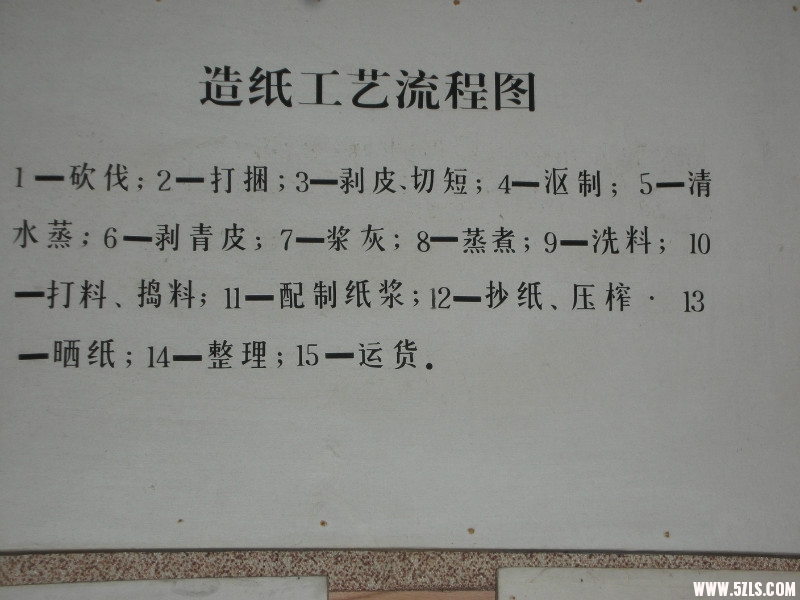 造纸工艺流程图
1—砍伐；2—打捆；3—剥皮、切短；4—沤制；5—清
水蒸；6—剥青皮；7—浆灰；8—蒸煮；9—洗料；10
—打料、捣料；11—配制纸浆；12—抄纸、压榨· 13
—晒纸；14—整理；15—运货.
WWW.5ZLS.COM